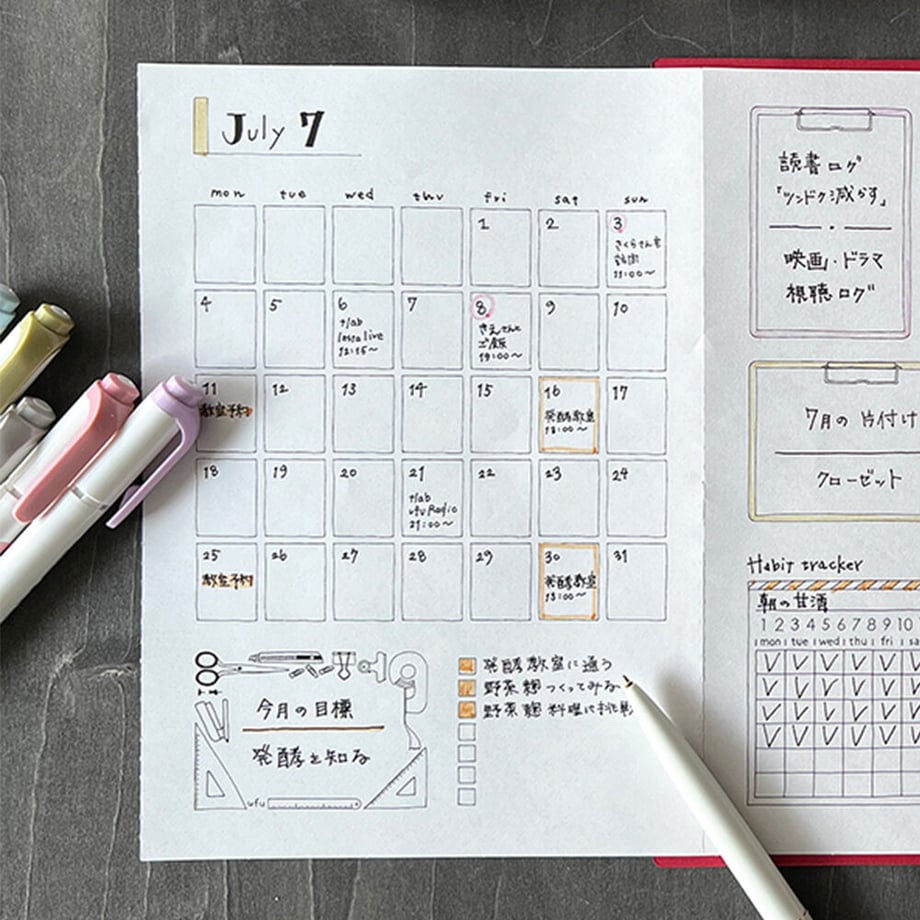 July 7
mon tue wed thu fri sat sun
1 2 3
さくらさん宅
訪問
11:00～
4 5 6 7 8 9 10
t/ab
insta live
12:15～
さえさんと
ご飯
19:00～
11 12 13 14 15 16 17
教室予約
発酵教室
13:00～
18 19 20 21 22 23 24
t/ab
ufu Radio
21:00～
25 26 27 28 29 30 31
教室予約
発酵教室
13:00～
今月の目標
発酵を知る
ufu
発酵教室に通う
野菜麹つくってみる
野菜麹料理に挑
読書ログ
「ツンドク減らす」
映画・ドラマ
視聴ログ
7月の片付け
クローゼット
Habit tracker
朝の甘酒
1 2 3 4 5 6 7 8 9 10
mon tue wed thu fri sa